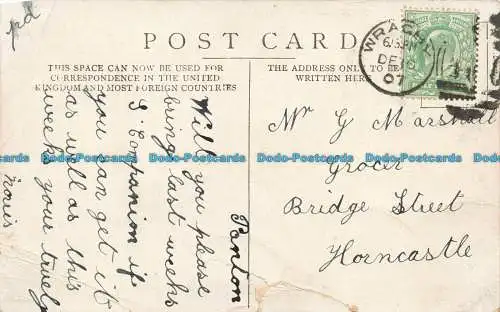 prd
POST CARD
THIS SPACE CAN NOW BE USED FOR
CORRESPONDENCE IN THE UNITED
KINGDOM AND MOST FOREIGN COUNTRIES
THE ADDRESS ONLY TO BE
WRITTEN HERE
WRAGBY
DE
07
Panton
Will you please
bring last weeks
G. Companion if
you can get it
as well as this
weeks your truly
Mr G Marshall
Grocer
Bridge Street
Horncastle
Dodo-Postcards Dodo-Postcards Dodo-Postcards Dodo-Postcards Dodo-Postcards